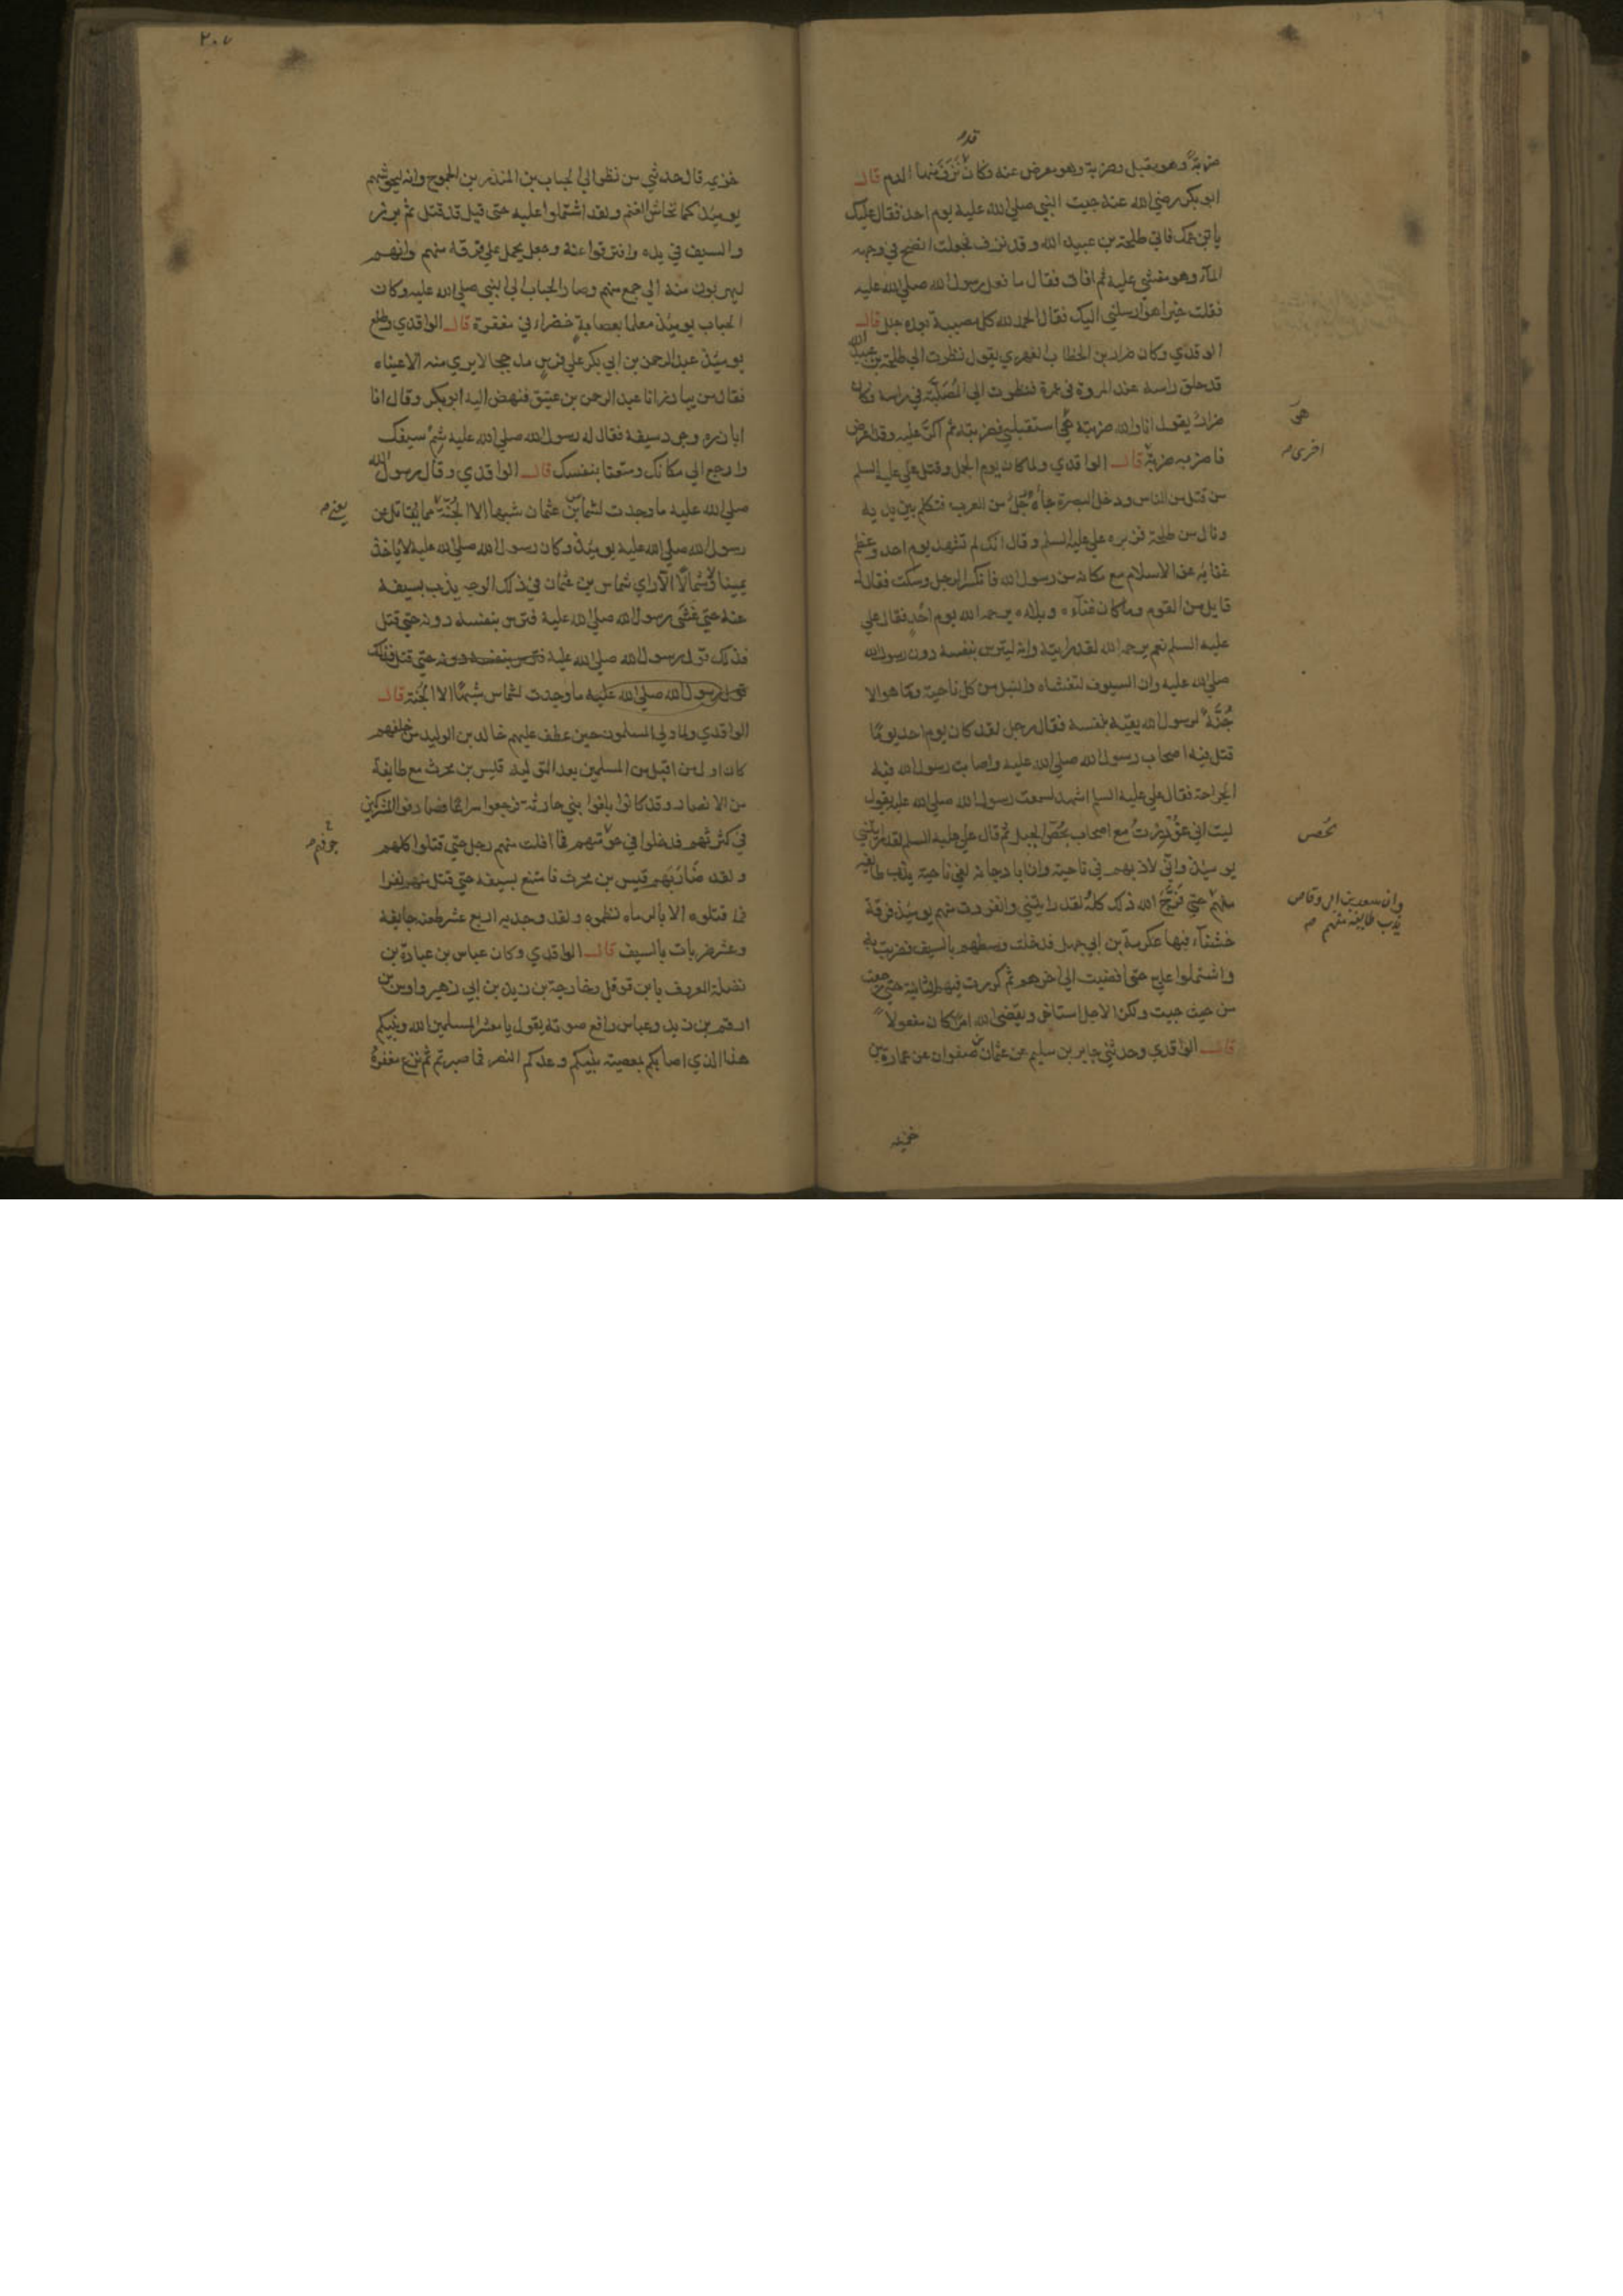 ضربة وهو مقبل وضربة وهو معرض عنه وكان قد نزف منها الدم قالــ
ابو بكر رضي الله عنه جيت النبي صلي الله عليه يوم احد فقال عليك
بابن عمك فاتي طلحة بن عبيد الله وقد نزف فجعلت انضح في وجهه
المآء وهو مغشي عليه ثم افاق فقال ما فعل رسول الله صلي الله عليه
فقلت خيرا هو ارسلني اليك فقال الحمد لله كل مصيبة بعده جلل قالــ
الواقدي وكان ضرار بن الخطاب الفهري يقول نظرت الي طلحة بن عبيد الله
قد حلق راسه عند المروة في عمرة فنظرت الي المصلبة في راسه وكان
ضرار يقول انا والله ضربته هي استقبلني فضربته ثم اكر عليه وقد اعرض
فاضربه ضربة قالــ الواقدي ولما كان يوم الجمل وقتل علي عليه السلم
من قتل من الناس ودخل البصرة جاءه رجل من العرب فتكلم بين يديه
ونال من طلحة فزبره علي عليه السلم وقال انك لم تشهد يوم احد وعظم
غنايه عن الاسلام مع مكانه من رسول الله فانكسر الرجل وسكت فقال له
قايل من القوم وما كان غنآءه وبلاءه يرحمه الله يوم احد فقال علي
عليه السلم نعم يرحمه الله لقد رايته وانه ليترس بنفسه دون رسول الله
صلي الله عليه وان السيوف لتغشاه والنبل من كل ناحية وما هو الا
جُنّة لرسول الله يقيه بنفسه فقال رجل لقد كان يوم احد يومًا
قتل فيه اصحاب رسول الله صلي الله عليه واصابت رسول الله فيه
الجراحة فقال علي عليه السلم اشهد لسمعت رسول الله صلي الله عليه يقول
ليت اني غودرت مع اصحاب نُحص الجبل ثم قال علي عليه السلم لقد رايتني
يوميذ واني لاذبهم في ناحية وان ابا دجانة لفي ناحية يذب طايفة
منهم حتي فرّج الله ذلك كله لقد رايتني وانفردت منهم يوميذ فرقة
خشنآء فيها عكرمة بن ابي جهل فدخلت وسطهم بالسيف فضربت به
واشتملوا علي حتي افضيت الي اخرهم ثم كررت فيهم الثانية حتي رجعت
من حيث جيت ولكن الاجل استاخر ويقضي الله امرًا كان مفعولا
قالــ الواقدي وحدثني جابر بن سليم عن عثمان بن صفوان عن عمارة بن
هي
اخرى صـ
نُحص
وان سعد بن ابي وقاص
يذب طايفة منهم صـ
خزيمه
٢٠٧
خزيمه قال حدثني من نظر الي الحباب بن المنذر بن الجموح وانه ليحوشهم
يوميذ كما تحاش الغنم ولقد اشتملوا عليه حتي قيل قد قتل ثم برز
والسيف في يده وافترقوا عنه وجعل يحمل علي فرقة منهم وانهم
ليهربون منه الي جمع منهم وصار الحباب الي النبي صلي الله عليه وكان
الحباب يوميذ معلما بعصابة خضراء في مغفرة قالــ الواقدي وطلع
يوميذ عبد الرحمن بن ابي بكر علي فرس مدججا لا يري منه الا عيناه
فقال من يبارز انا عبد الرحمن بن عتيق فنهض اليه ابو بكر وقال انا
ابارزه وجرد سيفه فقال له رسول الله صلي الله عليه شِمْ سيفك
وارجع الي مكانك ومتعنا بنفسك قالــ الواقدي وقال رسول الله
صلي الله عليه ما وجدت لشماس بن عثمان شبها الا الجُنّة مما يقاتل عن
رسول الله صلي الله عليه يوميذ وكان رسول الله صلي الله عليه لا ياخذ
يمينا وشمالًا الا راي شماس بن عثمان في ذلك الوجه يذب بسيفه
عنه حتي غشي رسول الله صلي الله عليه فترس بنفسه دونه حتي قتل
فذلك قول رسول الله صلي الله عليه فترس بنفسه دونه حتي قتل فذلك
قول رسول الله صلي الله عليه ما وجدت لشماس شبهًا الا الجُنة قالــ
الواقدي ولما ولي المسلمون حين عطف عليهم خالد بن الوليد من خلفهم
كان اول من اقبل من المسلمين بعد التولية قيس بن محرث مع طايفة
من الانصار وقد كانوا بلغوا بني حارثة فرجعوا سراعًا فصادفوا المشركين
في كثرتهم فدخلوا في حومتهم فما افلت منهم رجل حتي قتلوا كلهم
ولقد ضاربهم قيس بن محرث فامتنع بسيفه حتي قتل منهم نفرا
فما قتلوه الا بالرماه نظموه ولقد وجد به اربع عشر طعنة جايفة
وعشر ضربات بالسيف قالــ الواقدي وكان عباس بن عبادة بن
نضلة المعروف بابن قوقل وخارجة بن زيد بن ابي زهير واوس بن
ارقم بن زيد وعباس رافع صوته يقول يا معشر المسلمين الله ونبيكم
هذا الذي اصابكم بمعصية نبيكم وعدكم النصر فما صبرتم ثم نزع مغفرهُ
يعني صـ